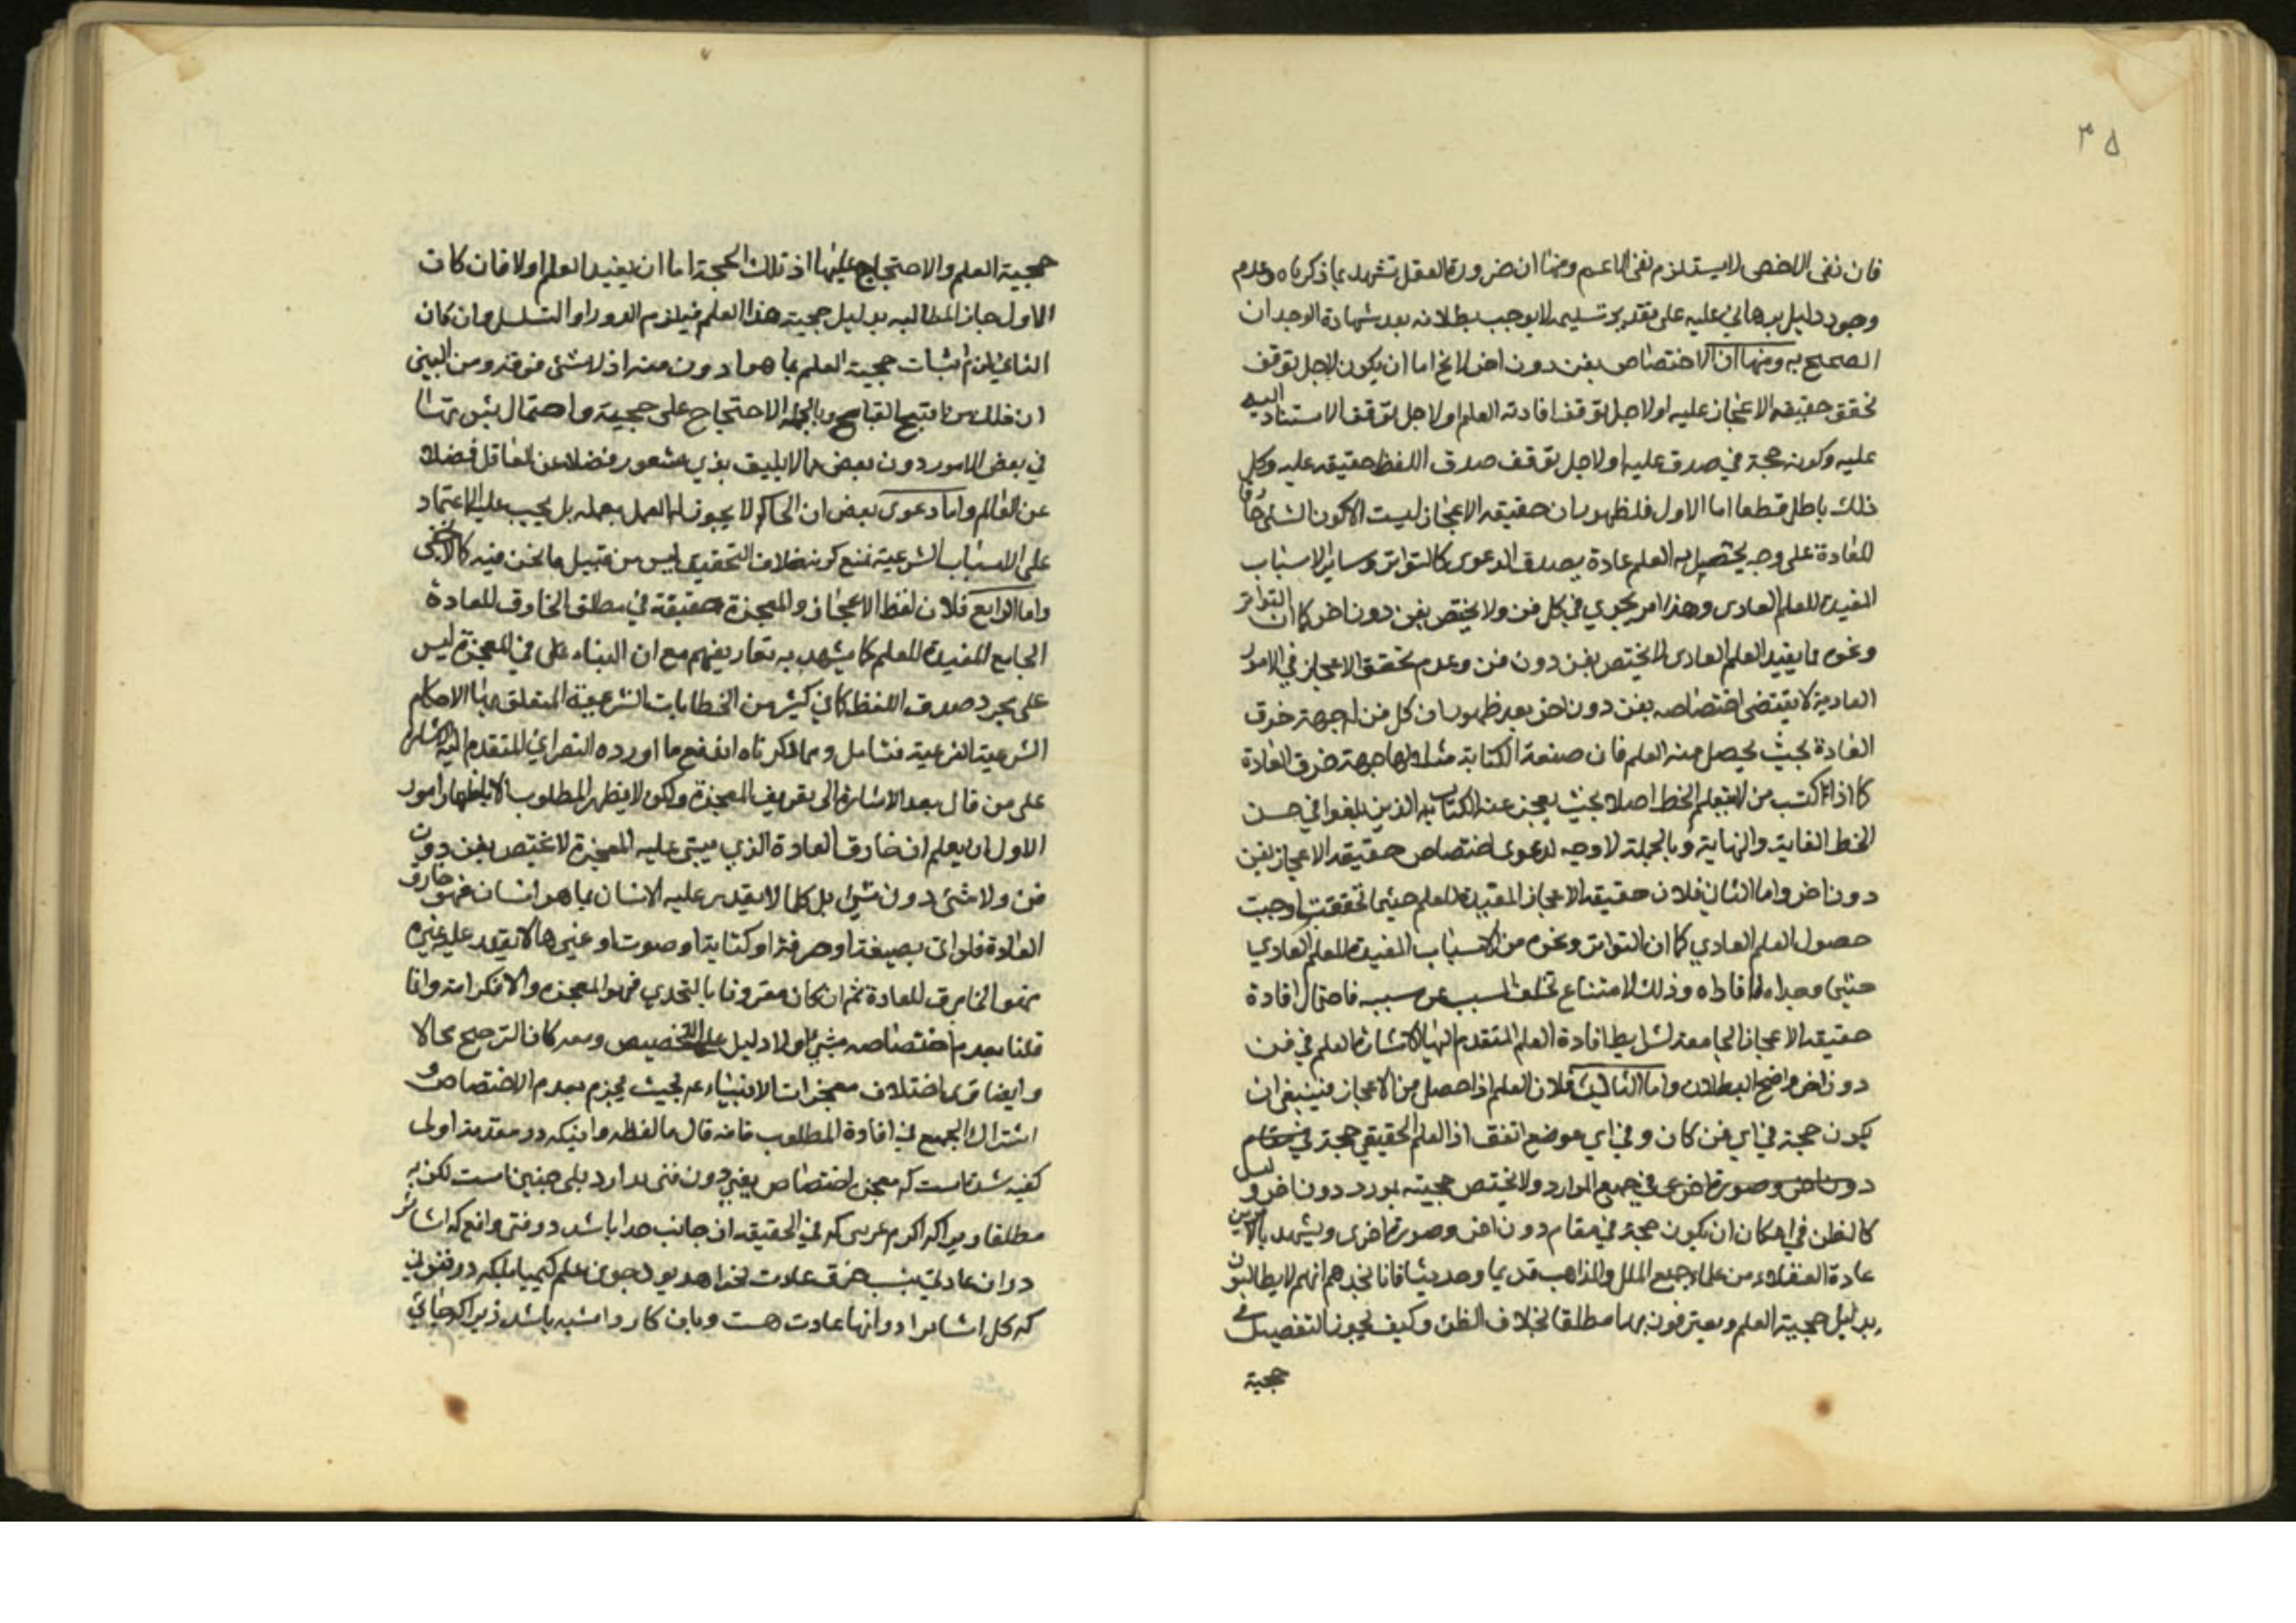 ۳۵
فان نفى الاخص لا يستلزم نفى الاعم ومنها ان ضرورة العقل تشهد بما ذكرناه وعدم
وجود دليل برهاني عليه على تقدير تسليمه لا يوجب بطلانه بعد شهادة الوجدان
الصحيح به ومنها ان الاختصاص بفن دون اخر لا يخ اما ان يكون لاجل توقف
تحقق حقيقة الاعجاز عليه او لاجل توقف افادته العلم او لاجل توقف الاستناد اليه
عليه وكونه حجة في صدق عليه او لاجل توقف صدق اللفظ حقيقة عليه وكل
ذلك باطل قطعا اما الاول فلظهور ان حقيقة الاعجاز ليست الا كون الشئ خارقا
للعادة على وجه يحصل به العلم عادة بصدق الدعوى كالتواتر وساير الاسباب
المفيدة للعلم العادى وهذا امر يجري في كل فن ولا يختص بفن دون اخر كما ان التواتر
ونحوه مما يفيد العلم العادى لا يختص بفن دون فن وعدم تحقق الاعجاز في الامور
العادية لا يقتضى اختصاصه بفن دون اخر بعد ظهور ان كل فن له جهة خرق
العادة بحيث يحصل منه العلم فان صنعة الكتابة مثلا لها جهة خرق العادة
كما اذا كتب من لم يتعلم الخط اصلا بحيث يعجز عنه الكتاب الذين بلغوا في حسن
الخط الغاية والنهاية وبالجملة لا وجه لدعوى اختصاص حقيقة الاعجاز بفن
دون اخر واما الثاني فلان حقيقة الاعجاز المفيدة للعلم حيثما تحققت اوجبت
حصول العلم العادي كما ان التواتر ونحوه من الاسباب المفيدة للعلم العادي
حيثما وجدا افاداه وذلك لامتناع تخلف المسبب عن سببه فاحتمال افادة
حقيقة الاعجاز الجامعة لشرايط افادة العلم المتقدم اليها الاشارة العلم في فن
دون اخر واضح البطلان واما الثالث فلان العلم اذا حصل من الاعجاز فينبغى ان
يكون حجة في اي فن كان و في اي موضع اتفق اذ العلم الحقيقي حجة في مقام
دون اخر وصورة اخرى في جميع الموارد ولا يختص حجيته بمورد دون اخر وليس
كالظن في امكان ان يكون حجة في مقام دون اخر وصورة اخرى ويشهد بالامرين
عادة العقلاء من علماء جميع الملل والمذاهب قديما وحديثا فانا نجدهم انهم لا يطالبون
بدليل حجية العلم ويعترفون بها مطلقا بخلاف الظن وكيف يجوز التفصيل في
حجية
حجية العلم والاحتجاج عليها اذ تلك الحجة اما ان يفيد العلم او لا فان كان
الاول جاز المطالبه بدليل حجية هذا العلم فيلزم الدور او التسلسل وان كان
الثاني لزم اثبات حجية العلم بما هو ادون منه اذ لا شئ فوقه ومن البين
ان ذلك من اقبح القبايح وبالجملة الاحتجاج على حجيته واحتمال ثبوتها
في بعض الامور دون بعض مما لا يليق بذي شعور فضلا عن العاقل فضلا
عن العالم واما دعوى بعض ان الحاكم لا يجوز له العمل بعلمه بل يجب عليه الاعتماد
على الاسباب الشرعية فمع كونه خلاف التحقيق ليس من قبيل ما نحن فيه كما لا يخفى
واما الرابع فلان لفظ الاعجاز والمعجزة حقيقة في مطلق الخارق للعادة
الجامع المفيدة للعلم كما يشهد به تعاريفهم مع ان البناء على في المعجزة ليس
على مجرد صدق اللفظ كما في كثير من الخطابات الشرعية المتعلق بها الاحكام
الشرعية الفرعية فتامل ومما ذكرناه اندفع ما اورده النصراني المتقدم اليه الاشارة
على من قال بعد الاشارة الى تعريف المعجزة ولكن لا يظهر المطلوب الا باظهار امور
الاول ان يعلم ان خارق العادة الذي يبتنى عليه المعجزة لا تختص بفن دون
فن ولا شئ دون شئ بل كلما لا يقدر عليه الانسان بما هو انسان فهو خارق
العادة فلو اتى بصيغة او حرفة او كتابة او صوت او غيرها لا يقدر عليه غيره
فهو الخارق للعادة ثم ان كان مقرونا بالتحدي فهو المعجزه والا فكرامة وانا
قلنا بعدم اختصاصه بشئ اولا دليل على التخصيص ومعه كان الترجيح محالا
وايضا ترى اختلاف معجزات الانبياء عم بحيث يجزم بعدم الاختصاص و
اشتراك الجميع في افادة المطلوب فانه قال ما لفظه واينكه در مقدمة اولى
كفته شده است كه معجزه اختصاص بفني دون فنى ندارد بلى چنين است لكن نه
مطلقا و چرا كه اكرم عرس كه في الحقيقه از جانب خدا باشد در فنى واقع كه اشائر
در ان عادى نيست خرق عادت نخواهد بود چون علم كيميا بلكه در فنونى
كه كل اشائر ادر انها عادت هست و باين كار وا مشبه باشد زيرا كه خائى